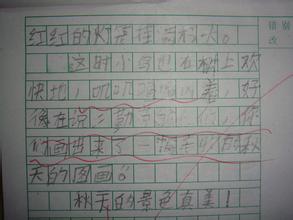 错别
改
红红的灯笼挂满枝头。
这时小鸟也在树上欢
快地，叽叽喳喳着，好
像在说：勤，你
们画出来了一的秋
天的图画。
秋天的景色真美！